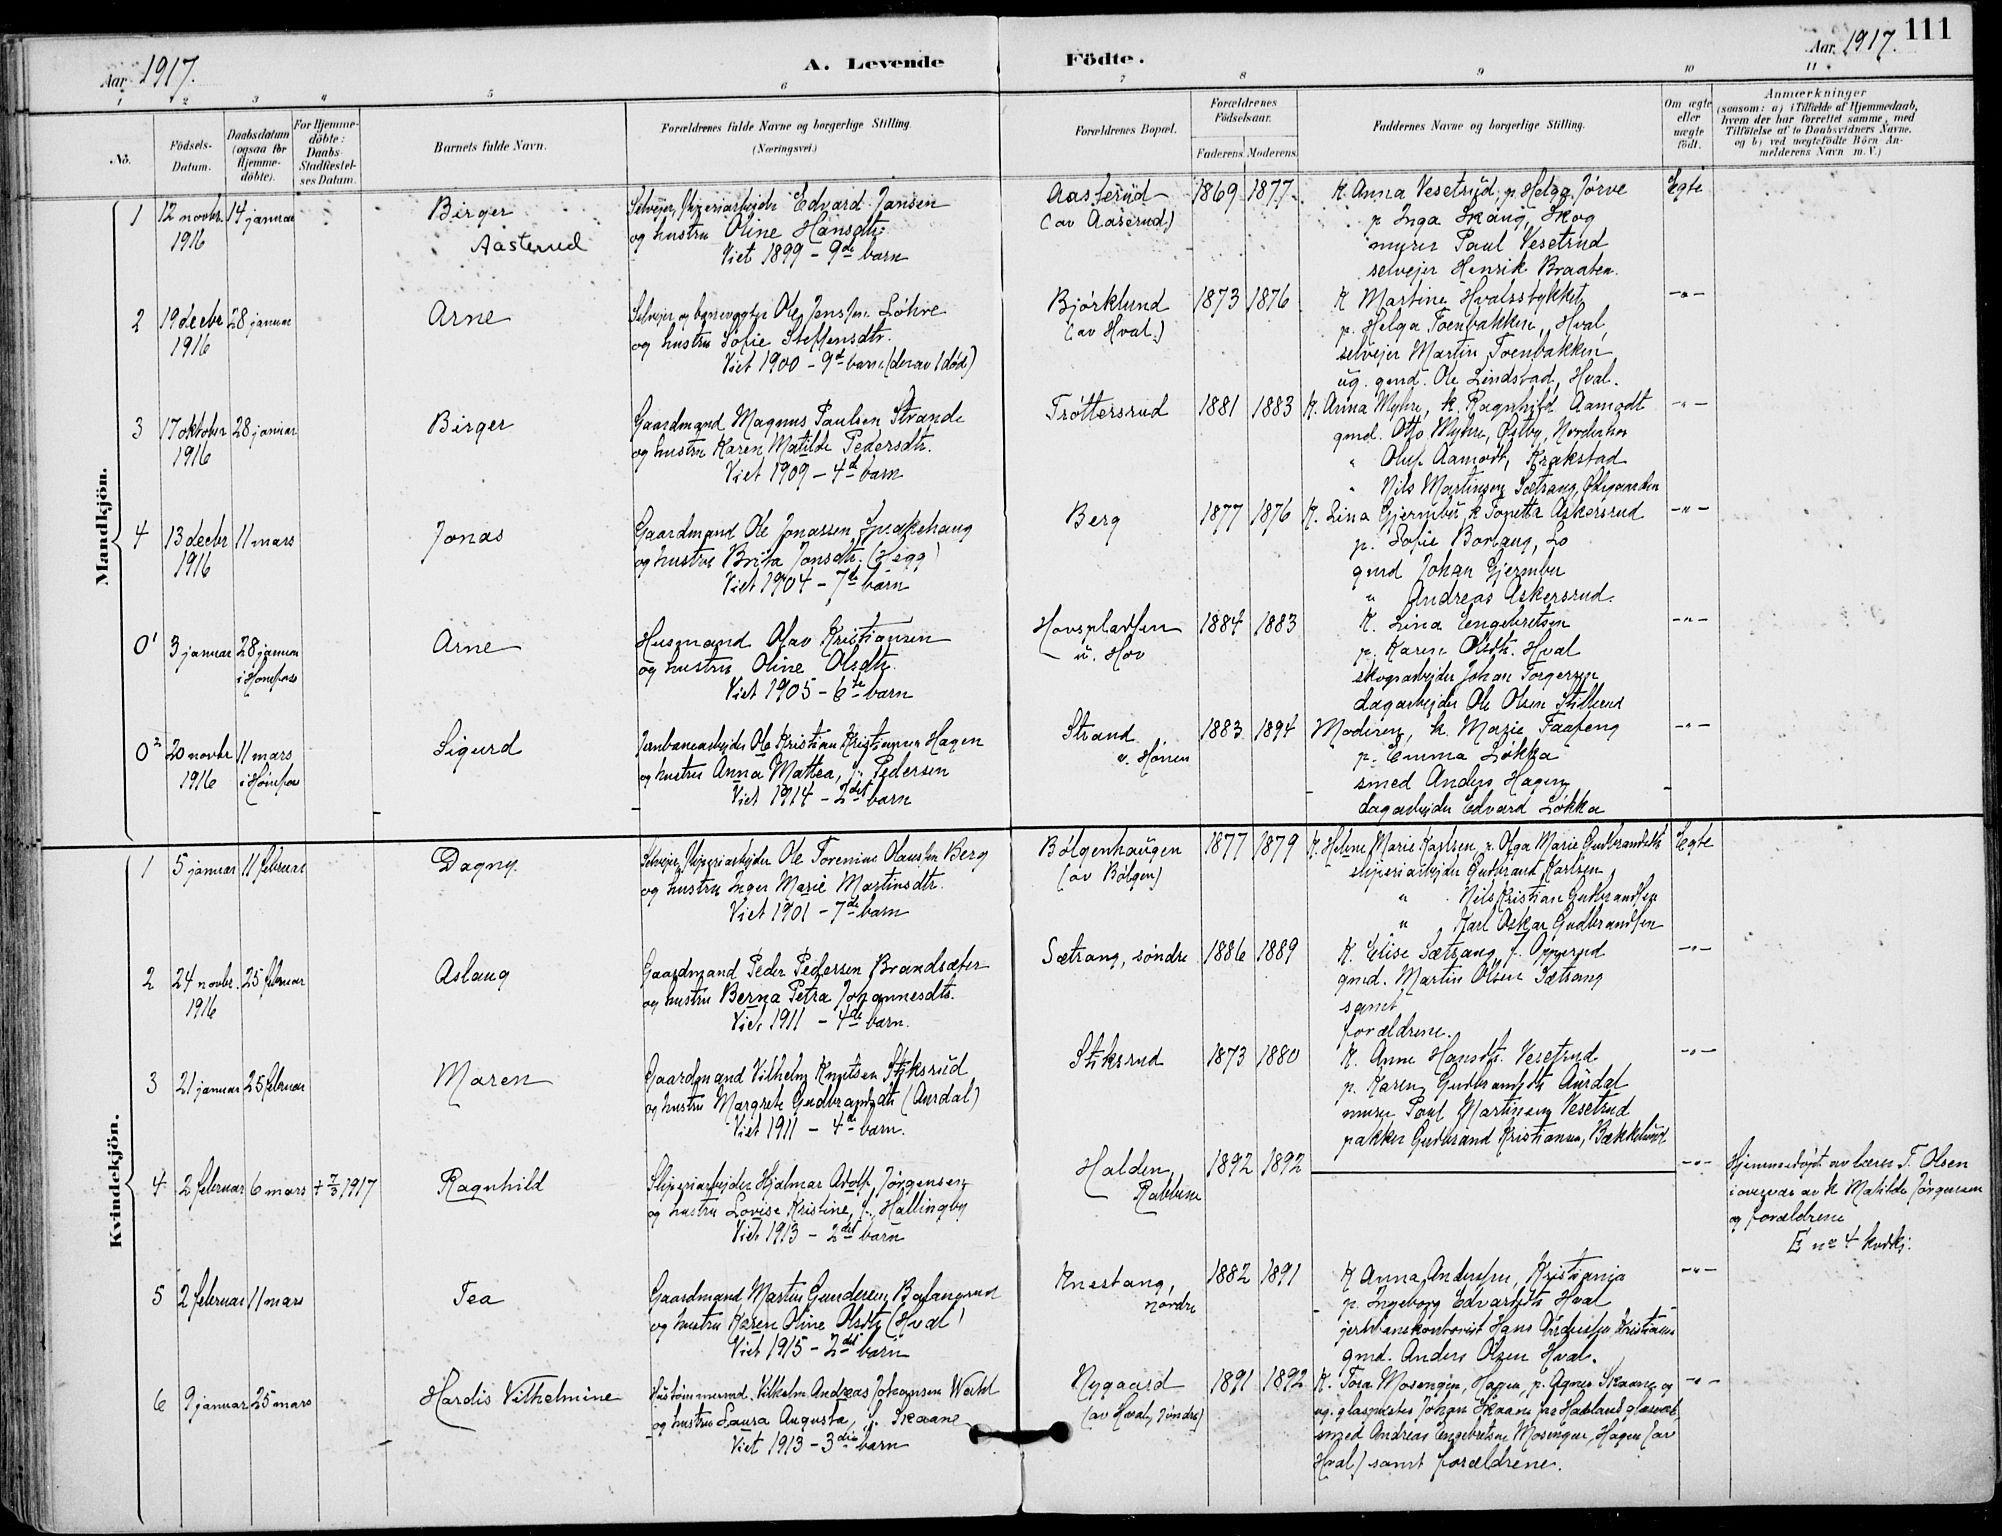 111
Aar 1917.
A. Levende
Födte.
Aar 1917.
1 2 3 4 5 6 7 8 9 10 11
No.
Födsels-Datum.
Daabsdatum (ogsaa for Hjemme-döbte).
For Hjemme-döbte: Daabs-Stadfæstel-ses Datum.
Barnets fulde Navn.
Forældrenes fulde Navne og borgerlige Stilling.
(Næringsvei.)
Forældrenes Bopæl.
Forældrenes Födselsaar.
Faderens. Moderens.
Faddernes Navne og borgerlige Stilling.
Om ægte eller uægte födt.
Anmærkninger
(saasom: a) i Tilfælde af Hjemmedaab,
hvem der har forrettet samme, med
Tilföielse af to Daabsvidners Navne.
og b) ved uægtefödte Börn An-
melderens Navn m. V.)
Mandkjön.
1 12 novbr. 1916 14 januar
Birger
Aasterud
Selvejer, sliperiarbejder Edvard Jansen
og hustru Oline Hansdtr.
Viet 1899 - 9de barn
Aaserud
(av Aaserud)
1869 1877
K. Anna Vesetrud, p. Helga Jørve
p. Inga Skaug, Skog
murer Paul Vesetrud
selvejer Henrik Braaten.
Egte
2 19 decbr 1916 28 januar
Arne
Selvejer og banevogter Ole Jensen Løhre
og hustru Sofie Steffensdtr.
Viet 1900 - 9de barn (derav 1 død)
Bjørklund
(av Hval.)
1873 1876
K Martine Hvalsstykket
p. Helga Toenbakken, Hval
selvejer Martin Toenbakken
ug. gmd. Ole Lindstad, Hval.
-"-
3 17 oktober 1916 28 januar
Birger
Gaardmand Magnus Paulsen Strande
og hustru Karen Matilde Pedersdtr.
Viet 1909 - 4de barn
Trøttersrud
1881 1883
K. Anna Myhre, k. Ragnhild Aamodt
gmd. Otto Myhre, Østby, Norderhov
" Oluf Aamodt, Krakstad
" Nils Martinsen Sætrang, Østgaarden
-"-
4 13 decbr 1916 11 mars
Jonas
Gaardmand Ole Jonassen Sprakehaug
og hustru Brita Jonsdtr. (Hegg)
Viet 1904 - 7de barn
Berg
1877 1876
K. Lina Gjermbu, k. Tonette Askersrud
p. Sofie Borlaug, Lo
gmd Johan Gjermbu
" Andreas Askersrud.
-"-
0¹ 3 januar 28 januar i Hønefos
Arne
Husmand Olav Kristiansen
og hustru Oline Olsdtr.
Viet 1905 - 6te barn
Hovspladsen
u. Hov
1884 1883
K. Lina Engebretsen
p. Karen Olsdtr. Hval
skogsarbejder Johan Torgersen
dagarbejder Ole Olsen Stillerud
-"-
0² 20 novbr 1916 11 mars i Hønefos
Sigurd
Jernbanearbejder Ole Kristian Kristiansen Hagen
og hustru Anna Mattea, f. Pedersen
Viet 1914 - 2det barn
Strand
v. Hønen
1883 1894
Moderen, k. Marie Faafeng
p. Emma Løkka
smed Anders Hagen
dagarbejder Edvard Løkka
-"-
Kvindekjön.
1 5 januar 11 februar
Dagny.
Selvejer, sliperiarbejder Ole Torenius Olaussen Berg
og hustru Inger Marie Martinsdtr.
Viet 1901 - 7de barn
Bølgenhaugen
(av Bølgen)
1877 1879
K. Helene Marie Karlsen, p. Olga Marie Gudbrandsdtr
sliperiarbejder Gudbrand Karlsen
" Nils Kristian Gudbrandsen
" Karl Oskar Gudbrandsen
Egte
2 24 novbr. 1916 25 februar
Aslaug
Gaardmand Peder Pedersen Brandsæter
og hustru Berna Petra Johannesdtr.
Viet 1911 - 4de barn.
Sætrang, søndre
1886 1889
K. Elise Sætrang, f. Oppgrud
gmd. Martin Olsen Sætrang
samt
forældrene.
-"-
3 21 januar 25 februar
Maren
Gaardmand Vilhelm Knutsen Stiksrud
og hustru Margrete Gudbrandsdtr (Aurdal)
Viet 1911 - 4de barn.
Stiksrud
1873 1880
K. Anne Hansdtr. Vesetrud
p. Karen Gudbrandsdtr Aurdal
murer Paul Martinsen Vesetrud
pakker Gudbrand Kristiansen, Bækkelund
-"-
4 2 februar 6 mars + 7/3 1917
Ragnhild
Sliperiarbejder Hjalmar Adolf Jørgensen
og hustru Lovise Kristine, f. Hallingby
Viet 1913 - 2det barn
Halden,
Rabbene
1892 1892
-"-
Hjemmedøpt av lærer T. Olsen
i overvær av k Matilde Jørgensen
og forældrene
E no 4 kvdkj.
5 2 februar 11 mars
Tea
Gaardmand Martin Gundersen Borlangrud
og hustru Karen Oline Olsdtr (Hval)
Viet 1915 - 2det barn
Knestang,
nordre
1882 1891
K Anna Andersen, Kristiania
p. Ingeborg Edvardsdtr Hval
jernbanekontorist Hans Andersen Kristiania
gmd. Anders Olsen Hval.
-"-
6 9 januar 25 mars
Hardis Vilhelmine
Hustømmermd. Vilhelm Andreas Johansen Wahl
og hustru Laura Augusta, f. Skaane
Viet 1913 - 3die barn
Nygaard
(av Hval, søndre)
1891 1892
K. Tora Mosengen, Hagen, p. Agnes Skaane og
ug. glasmester Johan Skaane fra Hadeland glasverk,
smed Andreas Engebretsen Mosengen, Hagen (av
Hval) samt forældrene.
-"-